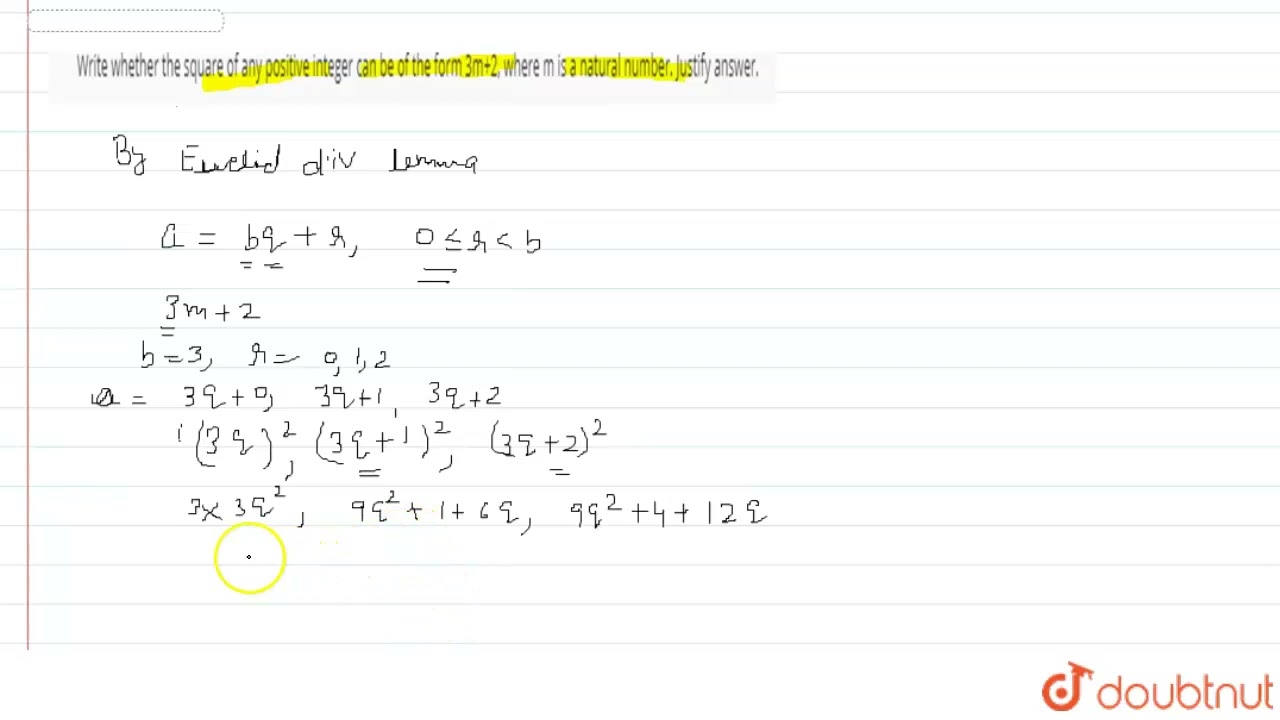 Write whether the square of any positive integer can be of the form 3m+2, where m is a natural number. Justify answer.
By Euclid div lemma
a = bq + r, 0 ≤ r < b
3m + 2
b = 3, r = 0, 1, 2
a = 3q + 0, 3q + 1, 3q + 2
(3q)², (3q + 1)², (3q + 2)²
3 × 3q², 9q² + 1 + 6q, 9q² + 4 + 12q
doubtnut